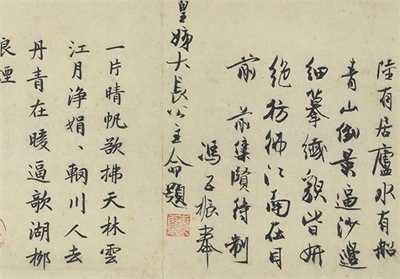 陸有居廬水有船
青山倒景逼沙邊
細摹纖貌皆妍
絕彷彿江南在目
前 前集賢待制
馮子振奉
皇姊大長公主命題
一片晴帆欲拂天林雲
江月淨娟、輞川人去
丹青在 逼歌湖柳